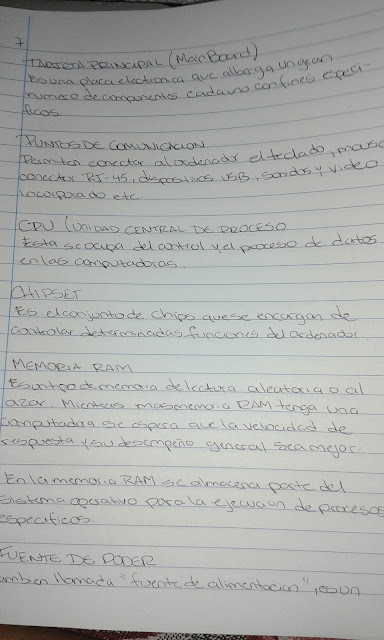 7
TARJETA PRINCIPAL (MainBoard)
Es una placa electronica que alberga un gran
numero de componentes cada uno con fines especi-
ficos.
PUNTOS DE COMUNICACION
Permiten conectar al ordenador el teclado, mouse
conector RJ-45, dispositivos USB, sonidos y video
incorporado etc.
CPU (UNIDAD CENTRAL DE PROCESO
Esta se ocupa del control y el proceso de datos
en las computadoras.
CHIPSET
Es el conjunto de chips que se encargan de
controlar determinadas funciones del ordenador.
MEMORIA RAM
Es un tipo de memoria de lectura aleatoria o al
azar. Mientras mas memoria RAM tenga una
computadora se espera que la velocidad de
respuesta y su desempeño general sea mejor.
En la memoria RAM se almacena parte del
sistema operativo para la ejecucion de procesos
especificos.
FUENTE DE PODER
ambien llamada "fuente de alimentacion", es un